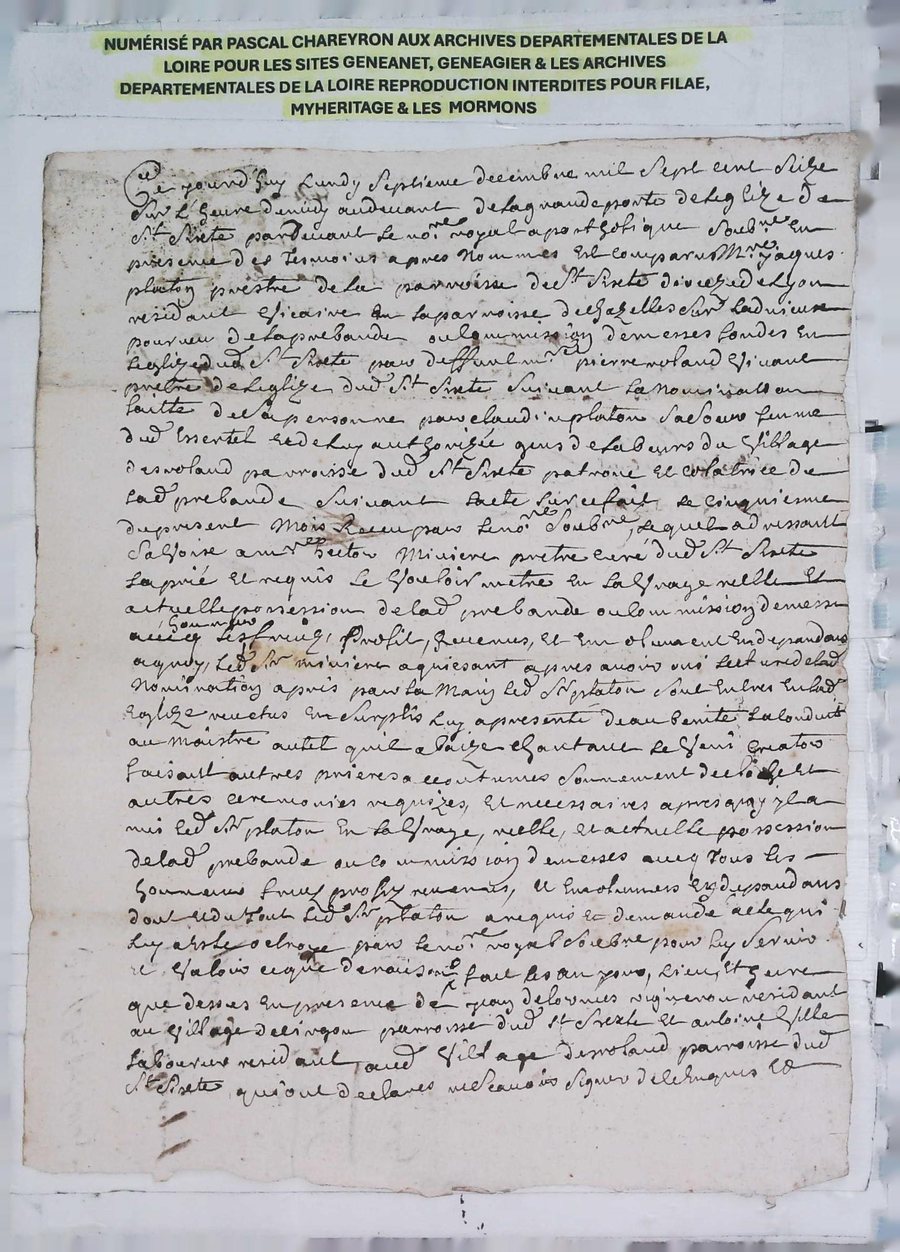 NUMÉRISÉ PAR PASCAL CHAREYRON AUX ARCHIVES DEPARTEMENTALES DE LA
LOIRE POUR LES SITES GENEANET, GENEAGIER & LES ARCHIVES
DEPARTEMENTALES DE LA LOIRE REPRODUCTION INTERDITES POUR FILAE,
MYHERITAGE & LES MORMONS
Ce jourd'huy Lundy Septieme decembre mil Sept cent Seize
Sur L'heure de midy audevant de la grande porte de leglize de
St. Sixte pardevant le nore. royal apostholique Soubné. En
presence des Tesmoins apres Nommes Est comparu Mre. Jaques
platon prestre de la parroisse de St. Sixte dioceze de Lyon
residant Vicaire En la parroisse de Chazelles Sur Ladvieux
pourveu de la prebande ou Commission de messes fondes En
Leglize dud. St. Sixte par deffunt mre. pierre roland Vivant
pretre de Leglize dud. St. Sixte Suivant La Nomination
faitte de Sa personne par claudine platon Sa Soeur femme
dud. Essertel Et de Luy authorizée gens de labeurs du Village
des roland parroisse dud. St. Sixte patrone Et colatrice de
lad. prebande Suivant lacte Sur ce fait le cinquiesme
du present Mois Receu par le nore. Soubné, lequel adressant
Sa Voise a mre. hector Miniere pretre curé dud. St. Sixte
La prié Et requis le Vouloir metre En La Vraye reelle Et
actuelle possession de lad. prebande ou commission de messe
honneurs
avecq Les fruicts, Profit, Revenus, Et Emolument En dependans
a quoy, led. Sr. miniere aquiesant apres avoir oui lecture de lad.
Nomination a pris par La Main led. Sr. platon Sont Entres En lad.
Eglize revetus En Surplis Luy a presenté deau benite La conduit
au Maistre autel quil a baize Chantant le Veni Creator
faisant autres prieres accoutumes Sonnement de cloche Et
autres ceremonies requizes, Et necessaires apres quoy yl a
mis led. Sr. platon En La Vraye, reelle, Et actuelle possession
de lad. prebande ou commission de messes avecq Tous les
honneurs fruicts profiz revenus, Et Emolumens En dependans
dont Et du Tout led. Sr. platon a requis Et demandé acte qui
Luy a Este octroye par le nore. royal Soubné pour luy Servir
Et Valoir ce que de raison fait les an jour, Lieu, Et heure
que dessus En presence de vigneron residant
au Village de parroisse dud. St. Sixte Et antoine Ville
laboureur residant aud. Village des roland parroisse dud.
St. Sixte qui ont declares ne Scavoir Signer de ce Enquis Et